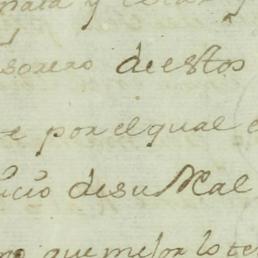 para y
sorero de estos
e por el qual
icio de su Real
que mejor lo te